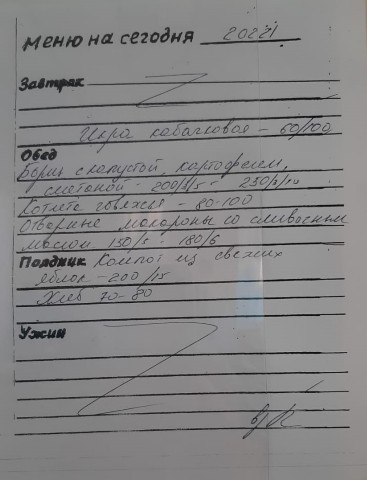 Меню на сегодня 2022г
Завтрак
Икра кабачковая - 60/100
Обед
Борщ с капустой, картофелем,
сметаной - 200/8/5 - 250/8/10
Котлета говяжья - 80-100
Отварные макароны со сливочным
маслом 150/5 - 180/6
Полдник Компот из свежих
яблок - 200/15
Хлеб 70-80
Ужин